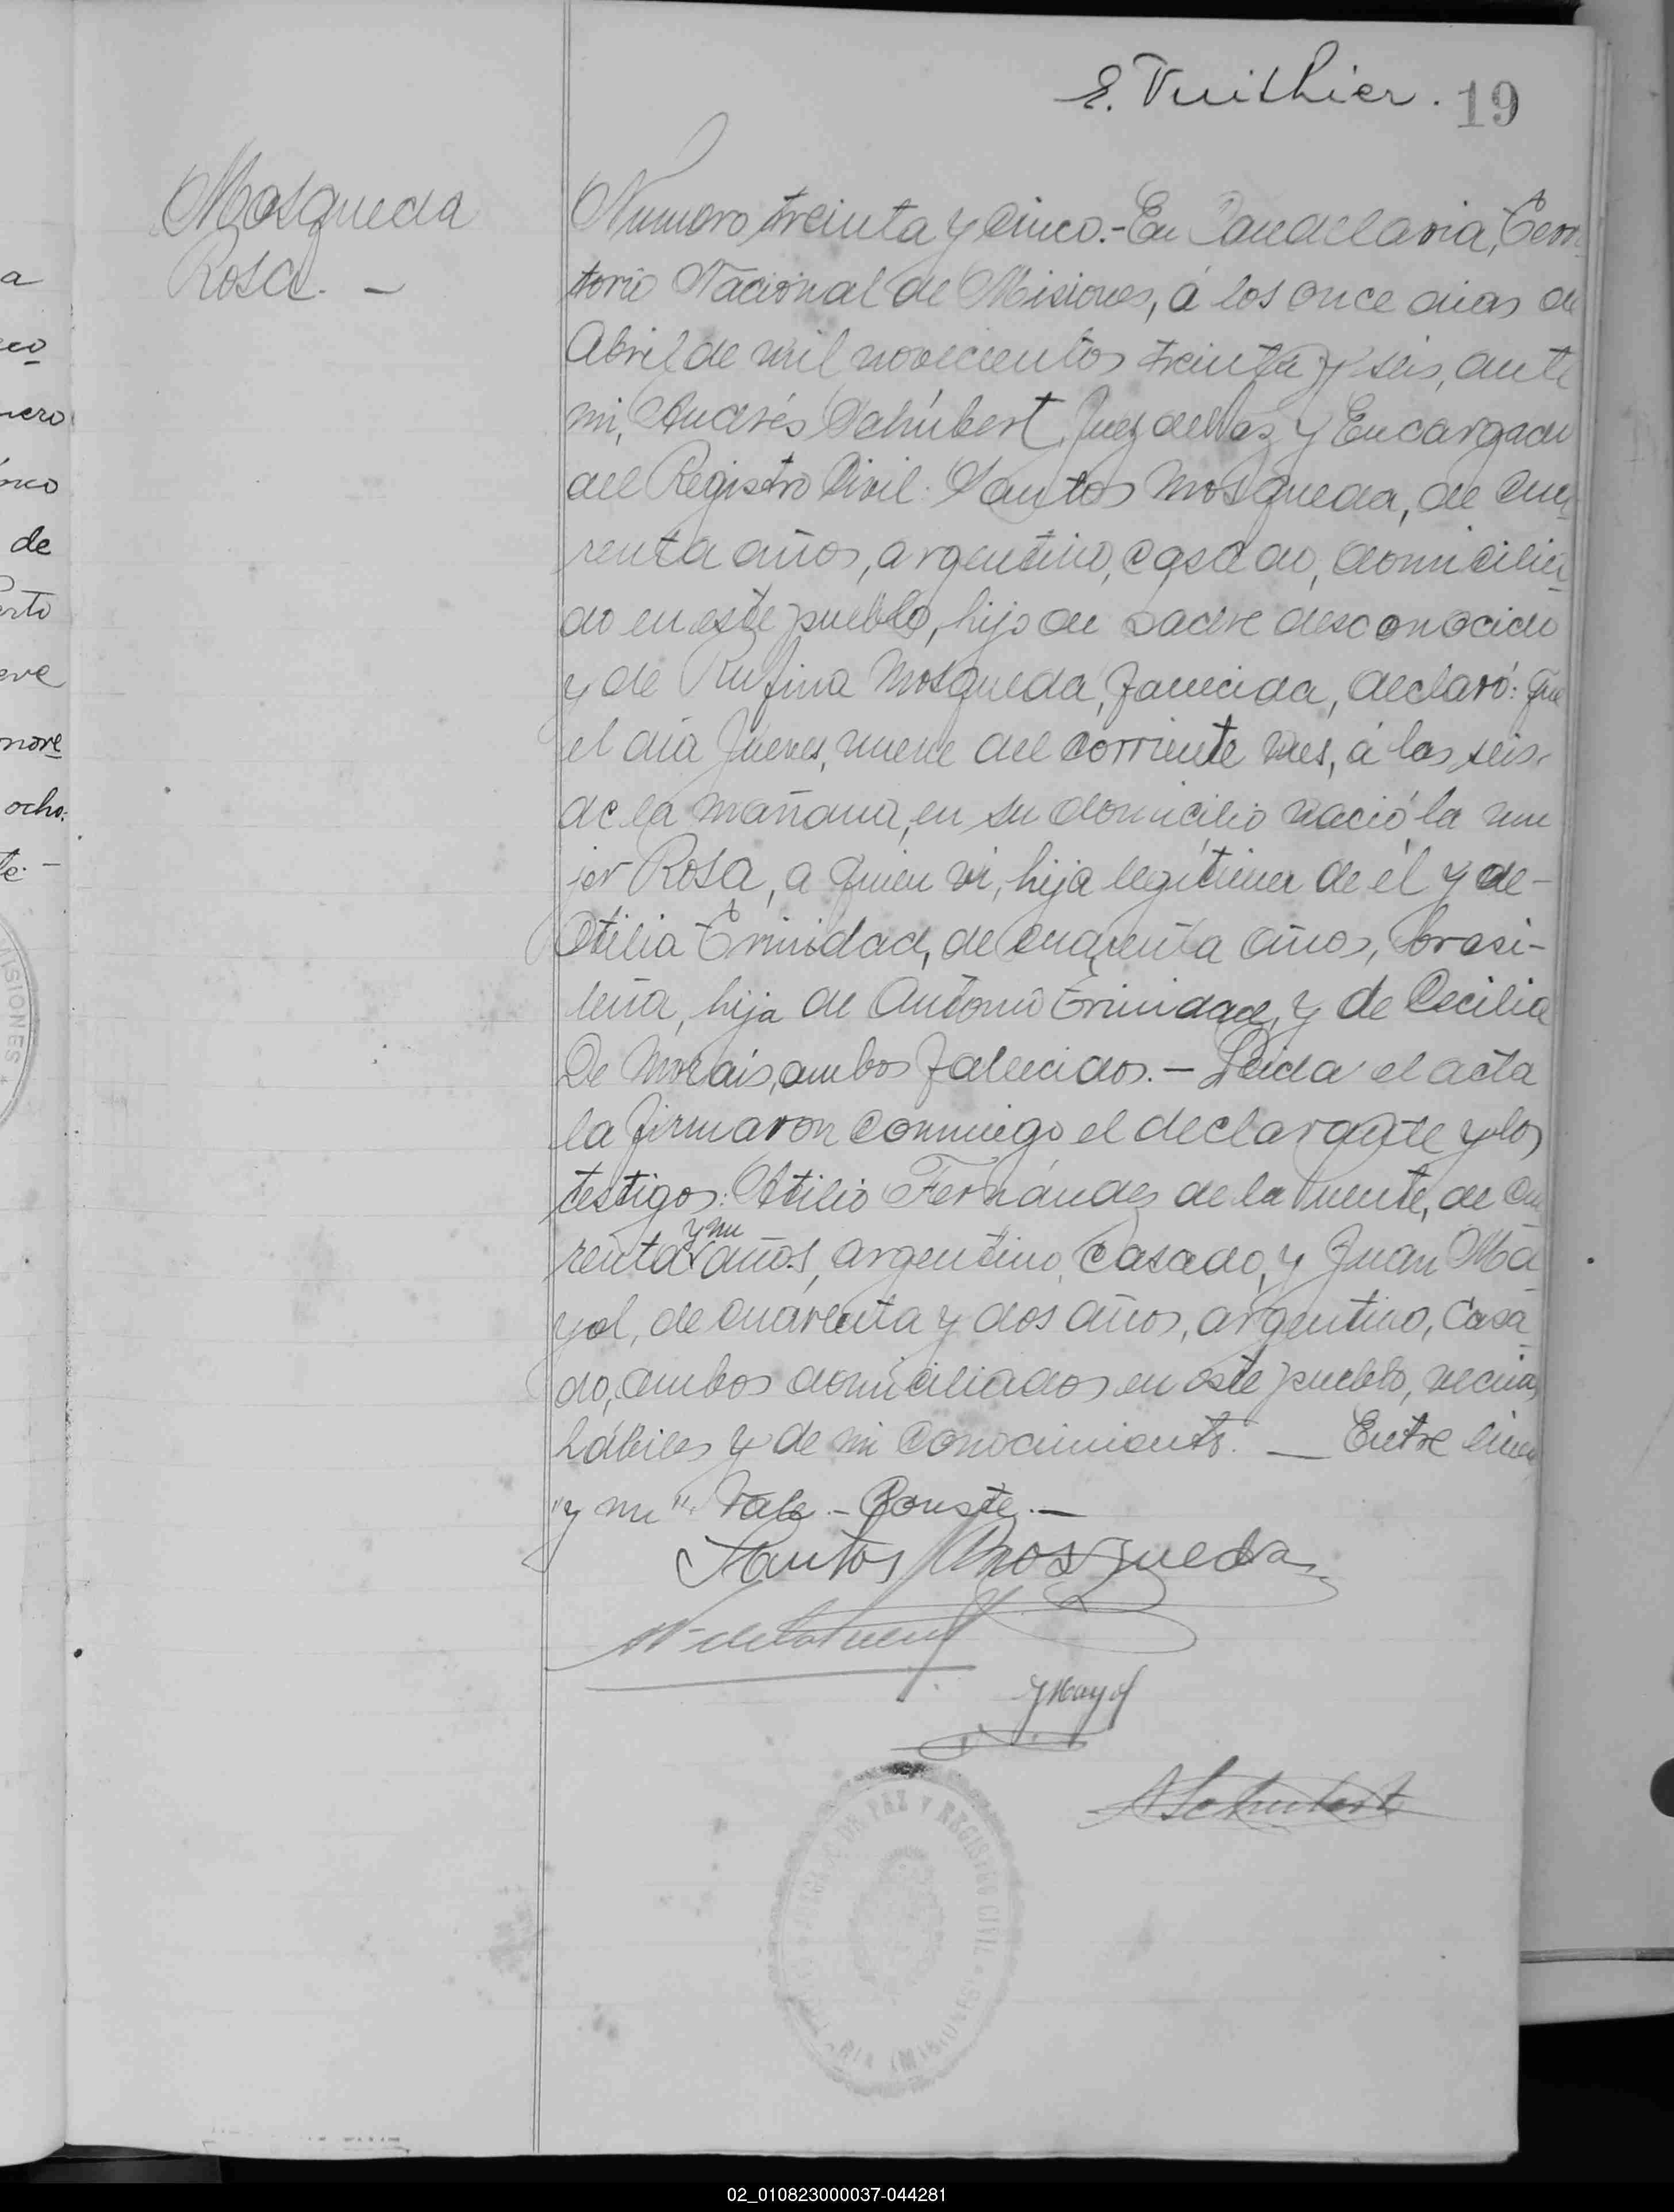 E. Vuithier. 19
Mosqueda
Rosa. —
Numero treinta y cinco.- En Candelaria, Terri
torio Nacional de Misiones, á los once dias de
Abril de mil novecientos treinta y seis, ante
mi, Andrés Schúbert, Juez de Paz y Encargado
del Registro Civil: Santos Mosqueda, de cua
renta años, argentino, casado, domicilia
do en este pueblo, hijo de padre desconocido
y de Rufina Mosqueda, fallecida, declaró: Que
el día Jueves, nueve del corriente mes, á las seis
de la mañana, en su domicilio nació la mu
jer Rosa, a quien vi, hija legítima de él y de -
Otilia Trinidad, de cuarenta años, brasi-
leña, hija de Antonio Trinidad, y de Cecilia
De Morais, ambos fallecidos. — Leida el acta
la firmaron conmigo el declarante y los
testigos: Atilio Fernández de la Puente, de cua
renta y un años, argentino, casado, y Juan Ma
yol, de cuarenta y dos años, argentino, casa
do, ambos domiciliados en este pueblo, vecinos
hábiles y de mi conocimiento. — Entre lineas
"y un". Vale. - Conste. —
Santos Mosqueda
F de la Puente
J Mayol
A Schubert
JUZGADO DE PAZ Y REGISTRO CIVIL
(MISIONES)
MISIONES
a
co
nero
de
rto
eve
nove
ocho.
te. —
02_010823000037-044281